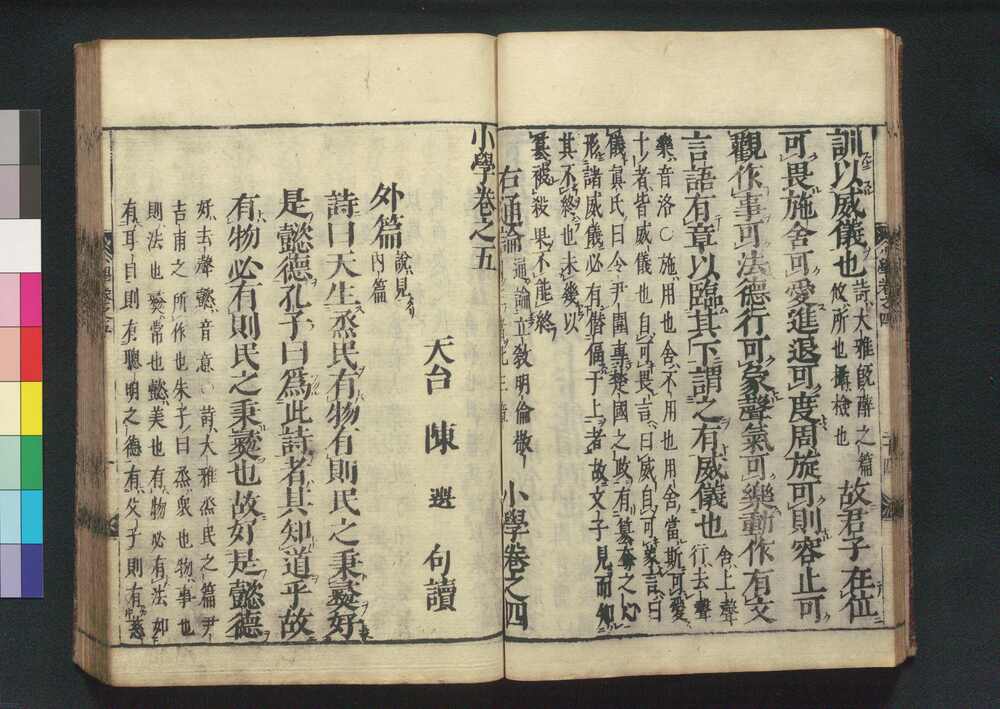 訓以威儀也詩大雅旣醉之篇攸所也攝檢也故君子在位
可畏施舍可愛進退可度周旋可則容止可
觀作事可法德行可象聲氣可樂動作有文
言語有章以臨其下謂之有威儀也舍上聲行去聲
樂音洛○施用也舍不用也用舍當斯可愛
十者皆威儀也自可畏言曰威自可象言曰
儀眞氏曰令尹圍專楚國之政有簒奪之心
形諸威儀必有僭偪于上者故文子見而知
其不終也未幾以
簒被殺果不能終
右通論通論立敎明倫敬
小學卷之四
小學卷之五
天台 陳 選 句讀
外篇說見內篇
詩曰天生烝民有物有則民之秉彝好
是懿德孔子曰爲此詩者其知道乎故
有物必有則民之秉彝也故好是懿德
好去聲懿音意○詩大雅烝民之篇尹
吉甫之所作也朱子曰烝衆也物事也
則法也彝常也懿美也有物必有法如
有耳目則有聰明之德有父子則有慈